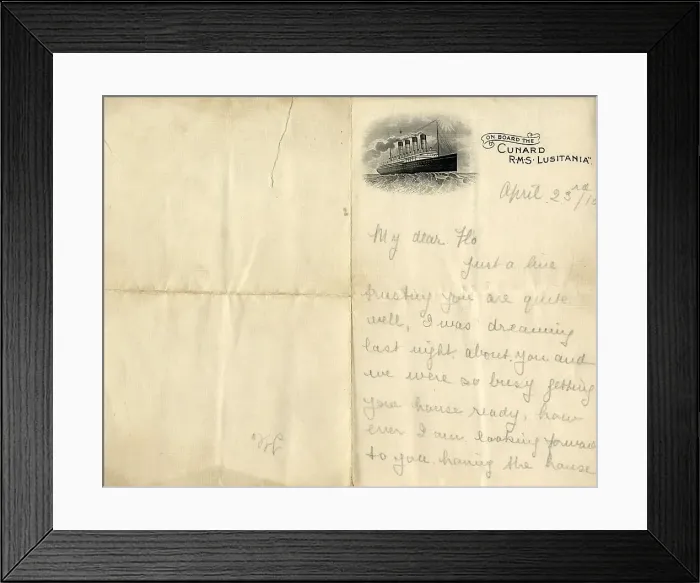 ON BOARD THE
CUNARD
R·M·S· LUSITANIA"
April 23rd /15
My dear Flo
Just a line
trusting you are quite
well, I was dreaming
last night about you and
we were so busy getting
your house ready, how
ever I am looking forward
to you having the house
Flo